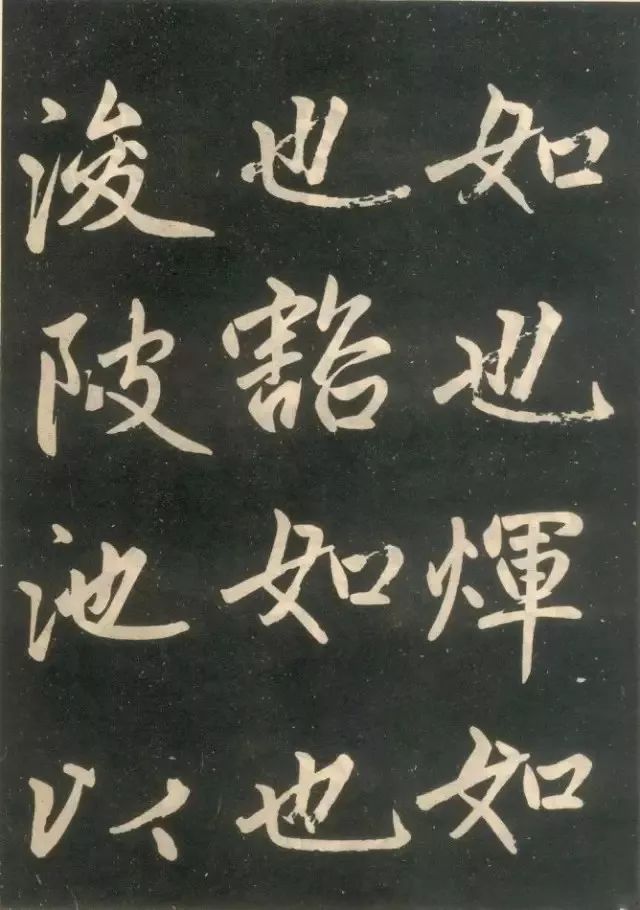 如也煇如
也豁如也
浚陂池以